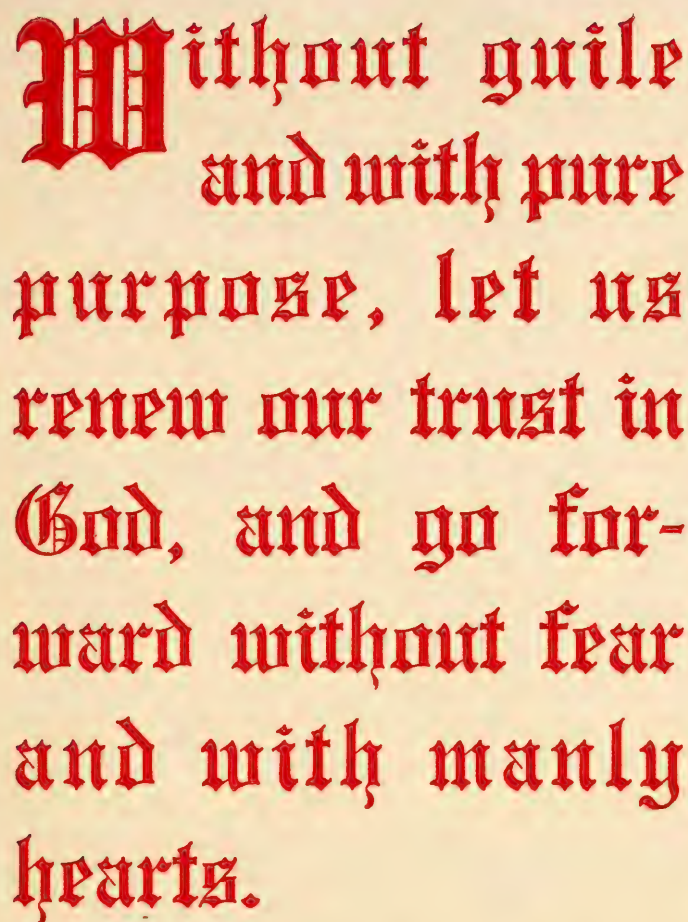 Without guile
and with pure
purpose, let us
renew our trust in
God, and go for-
ward without fear
and with manly
hearts.